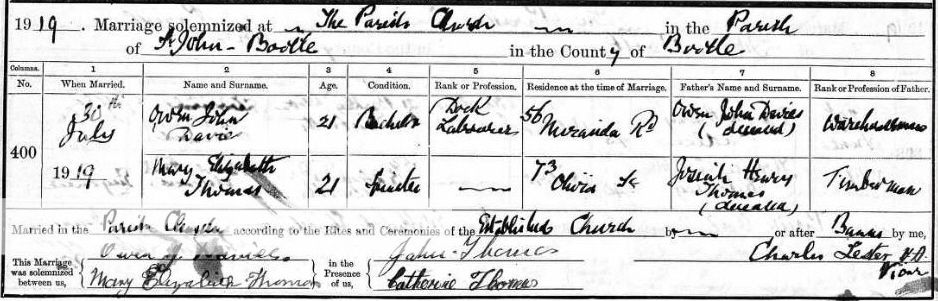 1919. Marriage solemnized at The Parish Church in the Parish
of St John - Bootle in the County of Bootle
Columns. 1 2 3 4 5 6 7 8
No. When Married. Name and Surname. Age. Condition. Rank or Profession. Residence at the time of Marriage. Father's Name and Surname. Rank or Profession of Father.
400
30th July 1919
Owen John Davies 21 Bachelor Dock Labourer 56 Miranda Rd Owen John Davies (deceased) Warehouseman
Mary Elizabeth Thomas 21 Spinster — 73 Olivia St Josiah Henry Thomas (deceased) Timberman
Married in the Parish Church according to the Rites and Ceremonies of the Established Church by — or after Banns by me,
This Marriage was solemnized between us, Owen J in the Presence of us, John Thomas Charles Lester
Mary Elizabeth Thomas Catherine Thomas Vicar